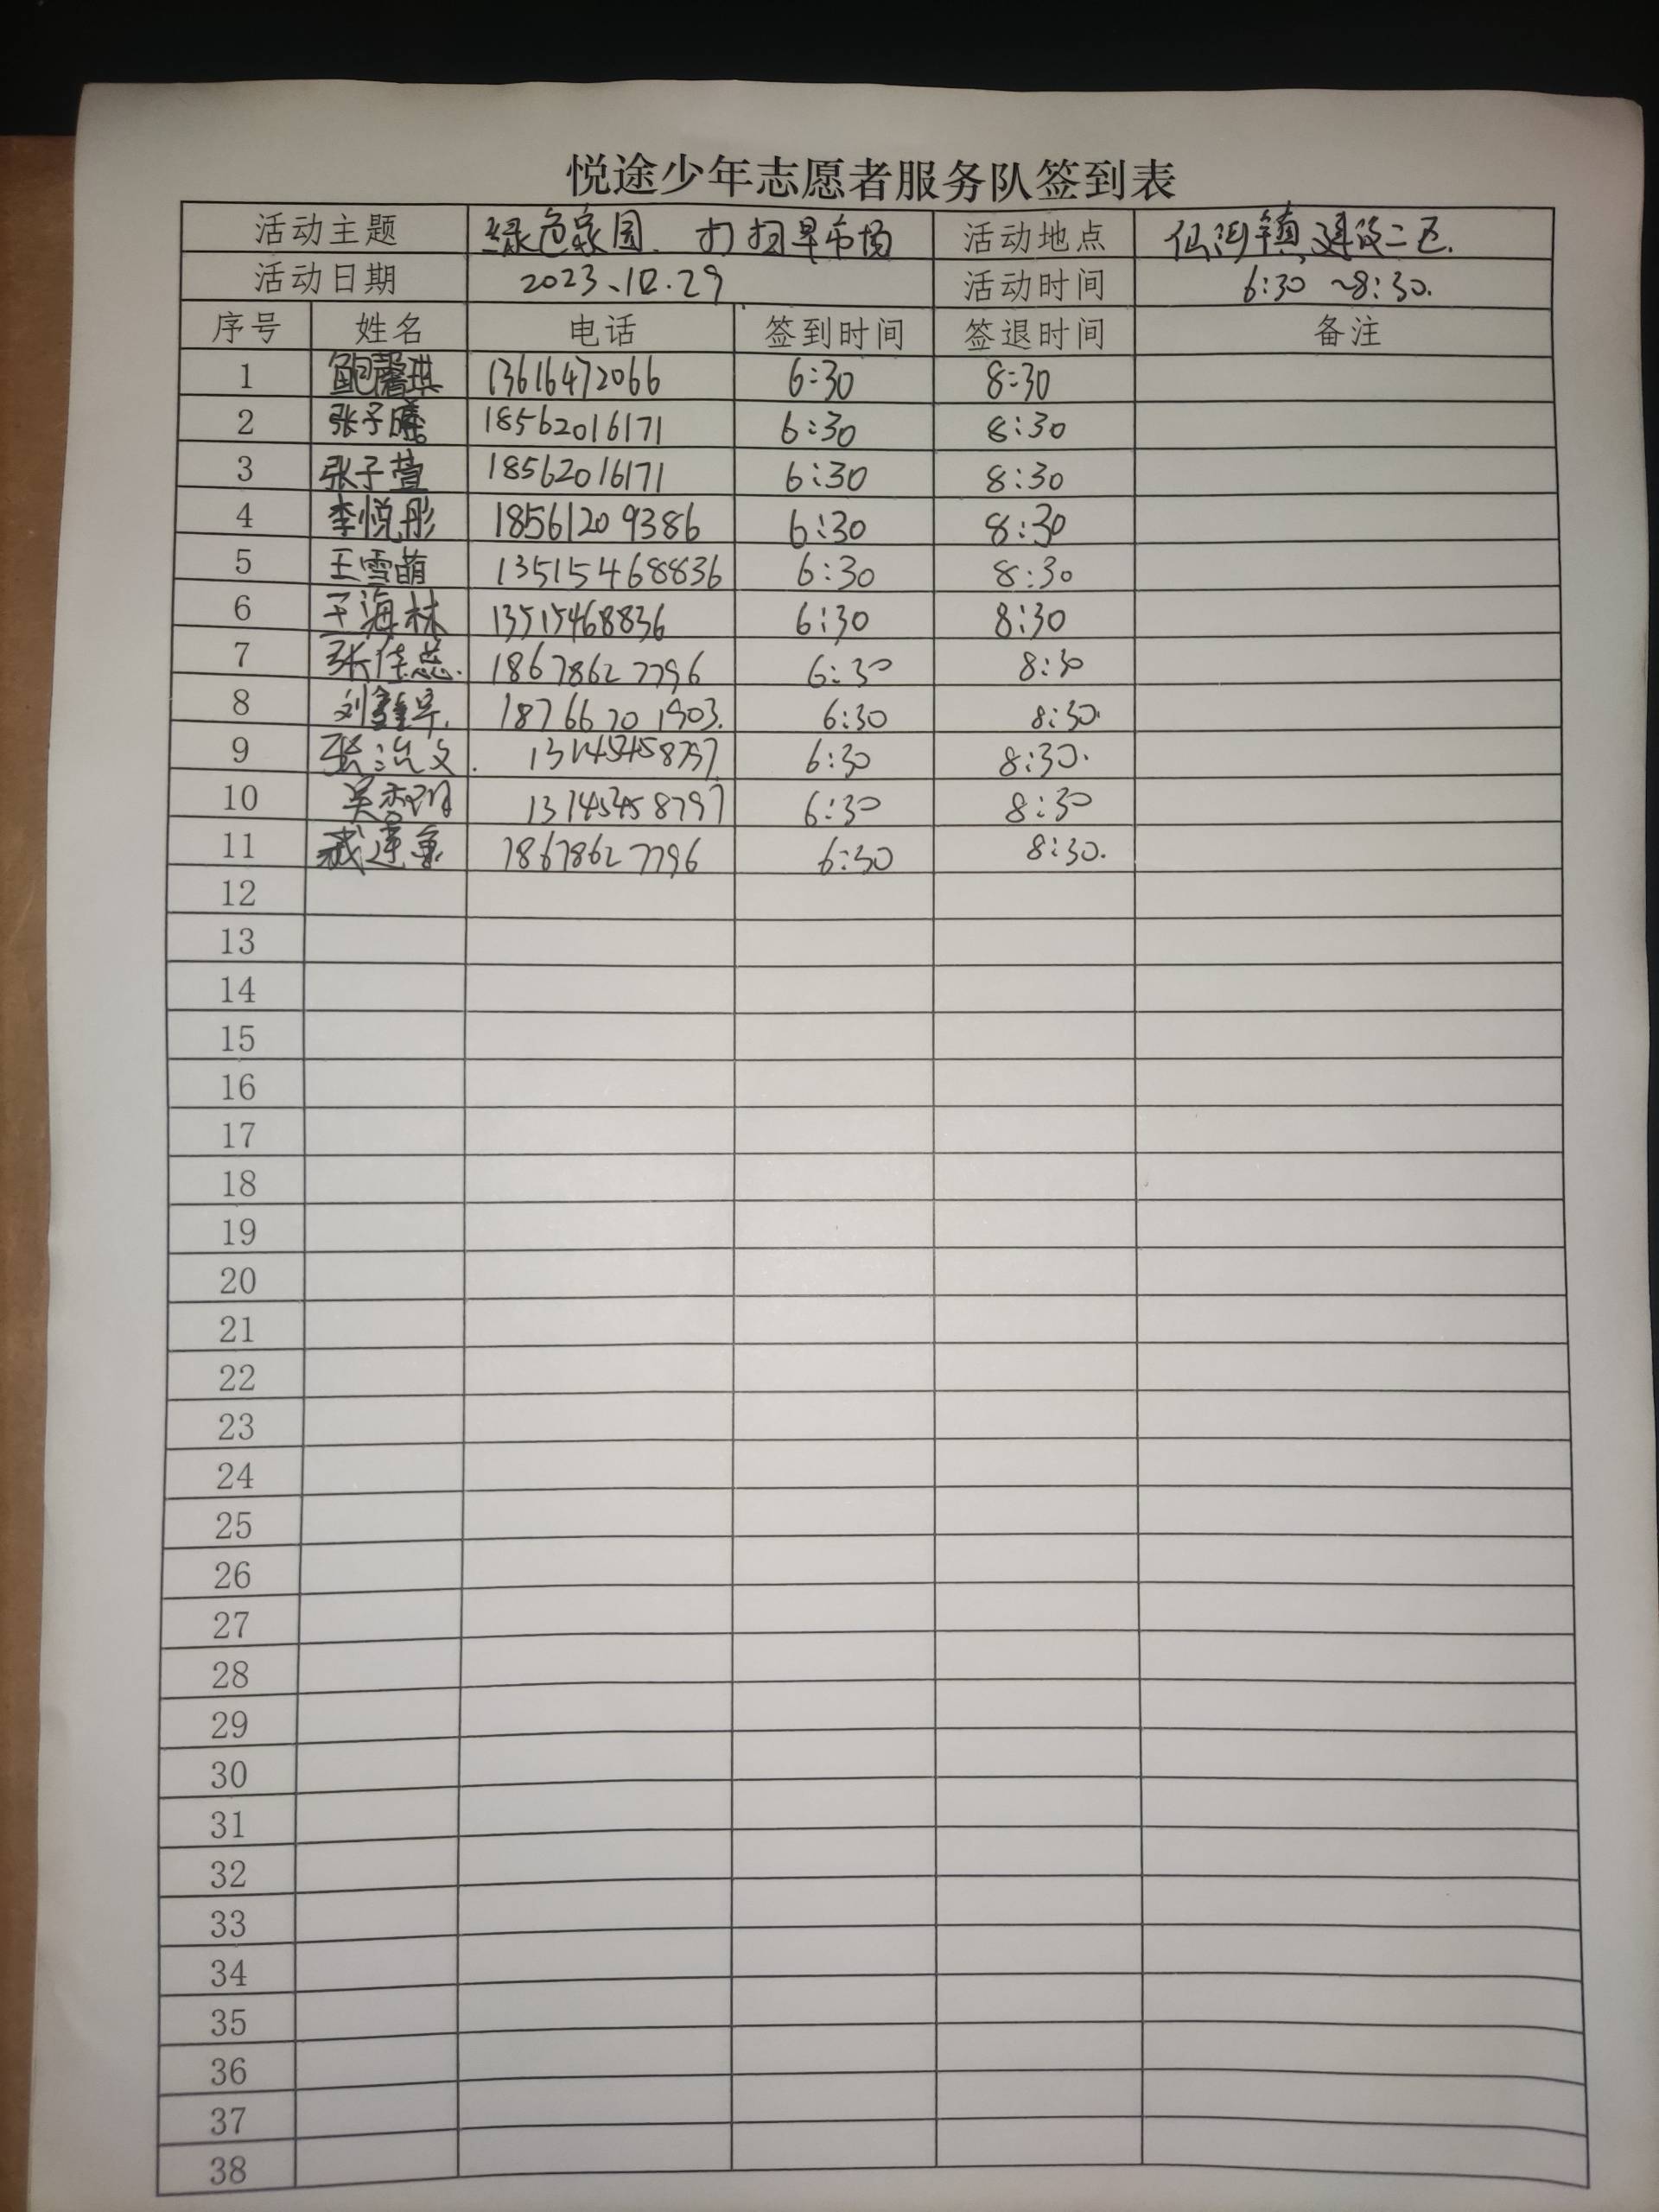 悦途少年志愿者服务队签到表
活动主题 绿色家园、打扫早市场 活动地点 仙河镇建设二区.
活动日期 2023.10.29 活动时间 6:30 ~8:30.
序号 姓名 电话 签到时间 签退时间 备注
1 鲍馨琪 13616472066 6:30 8:30
2 张子曦 18562016171 6:30 8:30
3 张子萱 18562016171 6:30 8:30
4 李悦彤 18561209386 6:30 8:30
5 王雪萌 135154468836 6:30 8:30
6 于海林 13515468836 6:30 8:30
7 张佳蕊. 18678627796 6:30 8:30
8 刘 18766201903. 6:30 8:30.
9 张 文. 6:30 8:30.
10 吴 6:30 8:30
11 18678627796 6:30 8:30.
12
13
14
15
16
17
18
19
20
21
22
23
24
25
26
27
28
29
30
31
32
33
34
35
36
37
38